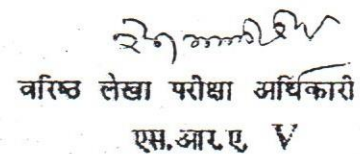 वरिष्ठ लेखा परीक्षा अधिकारी
एस.आर.ए. V